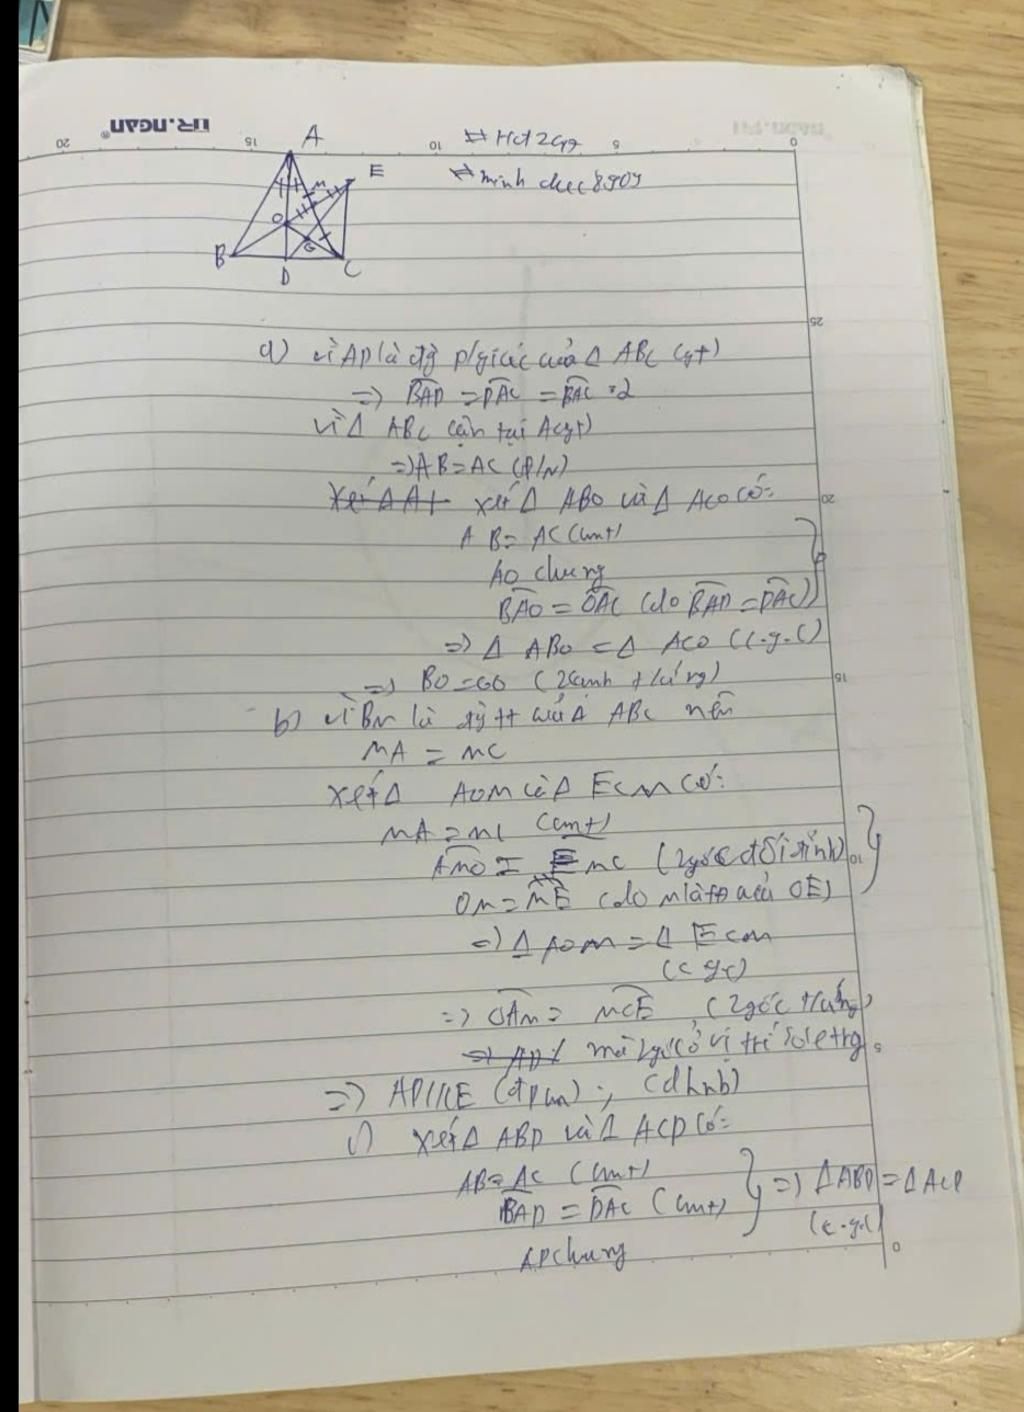 TR.NGAN®
20 15 10 5 0
# Hd 2G7
# minh duc 8909
A
E
M
O
G
B
D
C
25
a) vì AD là đg p/giác của Δ ABC (gt)
=> BAD = DAC = BAC : 2
vì Δ ABC cân tại A (gt)
=> AB = AC (Đ/N)
xét Δ ABO và Δ ACO có:
20
AB = AC (cmt)
AO chung
BAO = OAC (do BAD = DAC)
=> Δ ABO = Δ ACO (c.g.c)
=> BO = CO (2 cạnh t/ứng)
15
b) vì BM là đg tt của Δ ABC nên
MA = MC
Xét Δ AOM và Δ ECM có:
MA = MC (cmt)
AMO = EMC (2 góc đối đỉnh)
10
OM = ME (do M là tđ của OE)
=> Δ AOM = Δ ECM
(c.g.c)
=> OAM = MCE (2 góc t/ứng)
mà 2 góc ở vị trí so le trg
5
=> AD // CE (đpcm) ; (dhnb)
c) Xét Δ ABD và Δ ACD có:
AB = AC (cmt)
BAD = DAC (cmt) => Δ ABD = Δ ACD
(c.g.c)
AD chung
0